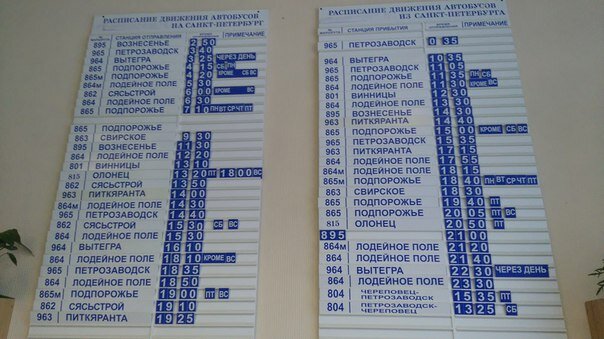 РАСПИСАНИЕ ДВИЖЕНИЯ АВТОБУСОВ
НА САНКТ-ПЕТЕРБУРГ
СТАНЦИЯ ОТПРАВЛЕНИЯ ПРИМЕЧАНИЕ
895 ВОЗНЕСЕНЬЕ 2 50
965 ПЕТРОЗАВОДСК 3 40
964 ВЫТЕГРА 3 40 ЧЕРЕЗ ДЕНЬ
865 ПОДПОРОЖЬЕ 4 15 СБ ПН
865м ПОДПОРОЖЬЕ 4 20 КРОМЕ СБ ВС
864 ЛОДЕЙНОЕ ПОЛЕ 5 30
862 СЯСЬСТРОЙ 6 00 КРОМЕ ВС
864 ЛОДЕЙНОЕ ПОЛЕ 6 30
865 ПОДПОРОЖЬЕ 7 10 ПН ВТ СР ЧТ ПТ
865 ПОДПОРОЖЬЕ
863 СВИРСКОЕ 9 30
895 ВОЗНЕСЕНЬЕ 11 30
864 ЛОДЕЙНОЕ ПОЛЕ 12 20
801 ВИННИЦЫ 13 10
815 ОЛОНЕЦ 13 20 ПТ 18 00 ВС
862 СЯСЬСТРОЙ 13 50
963 ПИТКЯРАНТА 14 00
864м ЛОДЕЙНОЕ ПОЛЕ 14 40
965 ПЕТРОЗАВОДСК 14 40
862 СЯСЬСТРОЙ 15 10 СБ ВС
864 ЛОДЕЙНОЕ ПОЛЕ 15 30
964 ВЫТЕГРА 16 10
864 ЛОДЕЙНОЕ ПОЛЕ 18 10 КРОМЕ ВС
965 ПЕТРОЗАВОДСК 18 35
864 ЛОДЕЙНОЕ ПОЛЕ 18 50
865м ПОДПОРОЖЬЕ 19 00 ПТ ВС
862 СЯСЬСТРОЙ 19 10
963 ПИТКЯРАНТА 19 25
РАСПИСАНИЕ ДВИЖЕНИЯ АВТОБУСОВ
ИЗ САНКТ-ПЕТЕРБУРГА
СТАНЦИЯ ПРИБЫТИЯ ПРИМЕЧАНИЕ
965 ПЕТРОЗАВОДСК 0 35
964 ВЫТЕГРА 10 35
965 ПЕТРОЗАВОДСК 11 05
865 ПОДПОРОЖЬЕ 11 35 ПН СБ
864 ЛОДЕЙНОЕ ПОЛЕ 11 30 КРОМЕ ВС
801 ВИННИЦЫ 12 30
864 ЛОДЕЙНОЕ ПОЛЕ 13 30
895 ВОЗНЕСЕНЬЕ 14 30
963 ПИТКЯРАНТА 14 40
865 ПОДПОРОЖЬЕ 15 00 КРОМЕ СБ ВС
965 ПЕТРОЗАВОДСК 15 35
963 ПИТКЯРАНТА 17 15
864 ЛОДЕЙНОЕ ПОЛЕ 17 55
864м ЛОДЕЙНОЕ ПОЛЕ 18 15
865м ПОДПОРОЖЬЕ 18 40 ПН ВТ СР ЧТ ПТ
863 СВИРСКОЕ 18 30
865 ПОДПОРОЖЬЕ 19 40 ПТ
865 ПОДПОРОЖЬЕ 20 05 ПТ ВС
815 ОЛОНЕЦ 20 50 ПТ
895 21 00
864м ЛОДЕЙНОЕ ПОЛЕ 21 20
864 ЛОДЕЙНОЕ ПОЛЕ 21 40
964 ВЫТЕГРА 22 30 ЧЕРЕЗ ДЕНЬ
864 ЛОДЕЙНОЕ ПОЛЕ 23 30
804 ЧЕРЕПОВЕЦ-ПЕТРОЗАВОДСК 15 35 ПТ
804 ПЕТРОЗАВОДСК-ЧЕРЕПОВЕЦ 13 25 СБ